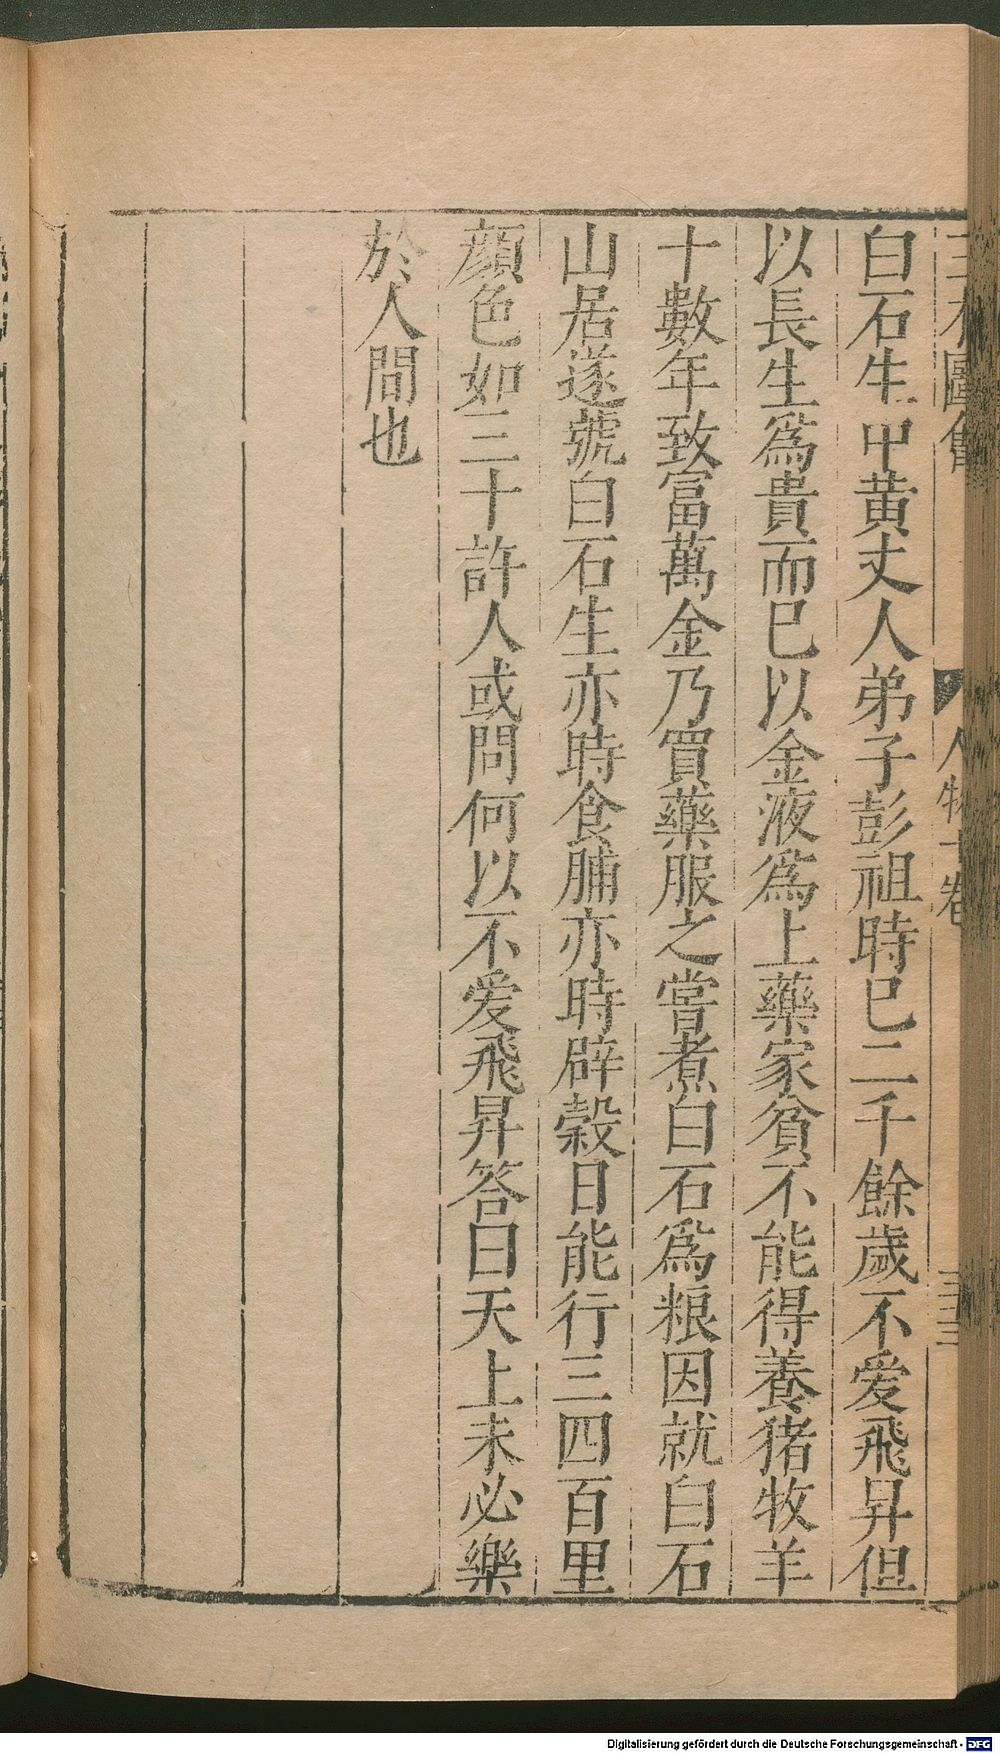 三才圖會 人物十卷 三三
白石生中黄丈人弟子彭祖時已二千餘歲不爱飛昇但
以長生爲貴而已以金液爲上藥家貧不能得養猪牧羊
十數年致富萬金乃買藥服之嘗煮白石爲粮因就白石
山居遂號白石生亦時食脯亦時辟穀日能行三四百里
顔色如三十許人或問何以不爱飛昇答曰天上未必樂
於人間也
Digitalisierung gefördert durch die Deutsche Forschungsgemeinschaft - DFG